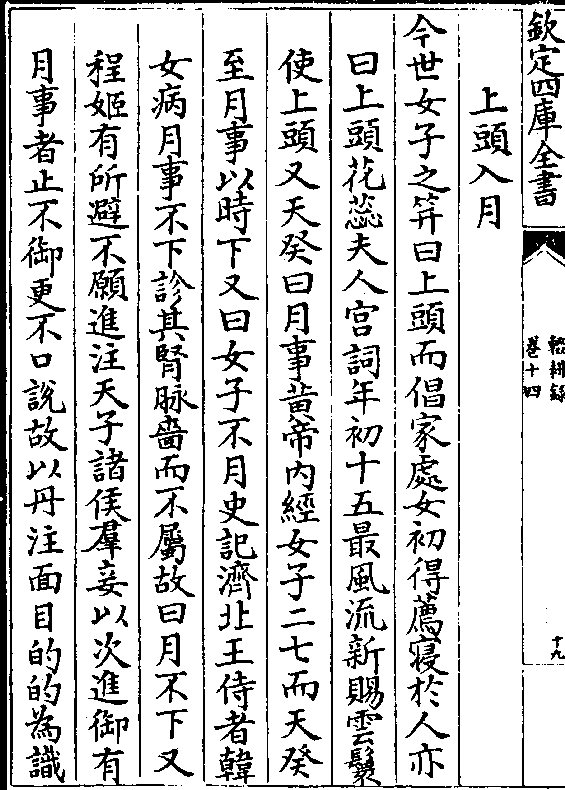 欽定四庫全書
輟耕錄
卷十四
十九
上頭入月
今世女子之筓曰上頭而倡家處女初得薦寢於人亦
曰上頭花蕊夫人宮詞年初十五最風流新賜雲鬟
使上頭又天癸曰月事黄帝内經女子二七而天癸
至月事以時下又曰女子不月史記濟北王侍者韓
女病月事不下診其腎脉嗇而不屬故曰月不下又
程姬有所避不願進注天子諸侯羣妾以次進御有
月事者止不御更不口說故以丹注面目的的為識